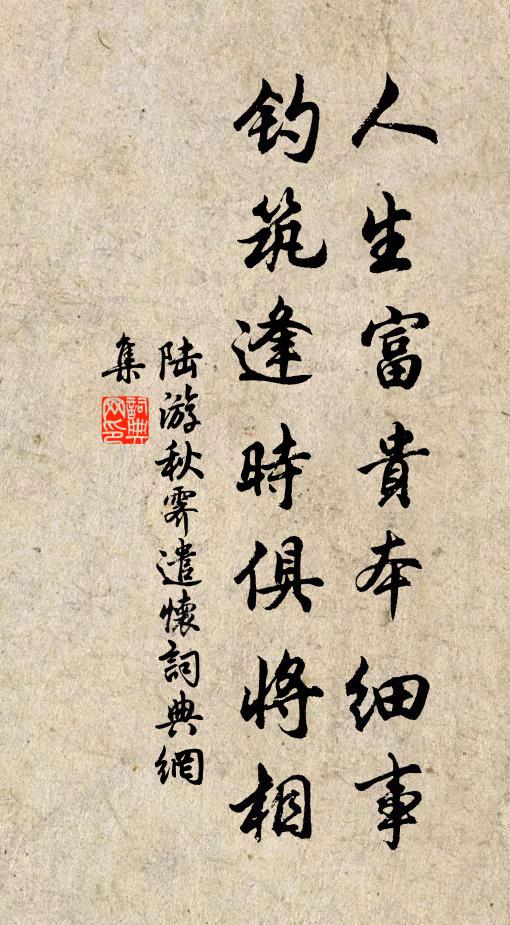 人生富貴本細事
钓筑逢時俱将相
陆游秋霽遣懷詞典網
集
詞典網印